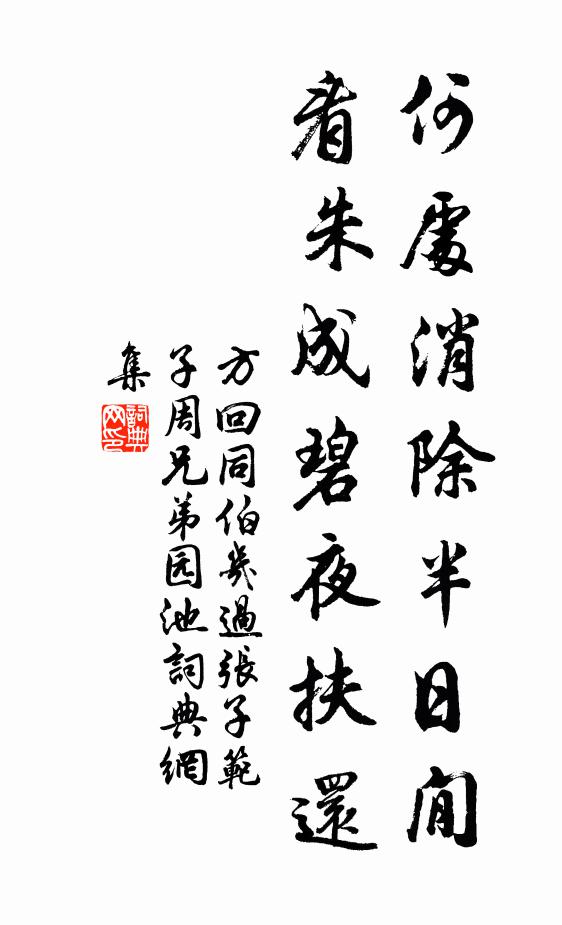 何處消除半日閒
看朱成碧夜扶還
方回同伯幾過張子範
子周兄弟园池詞典網
集
詞典
网印